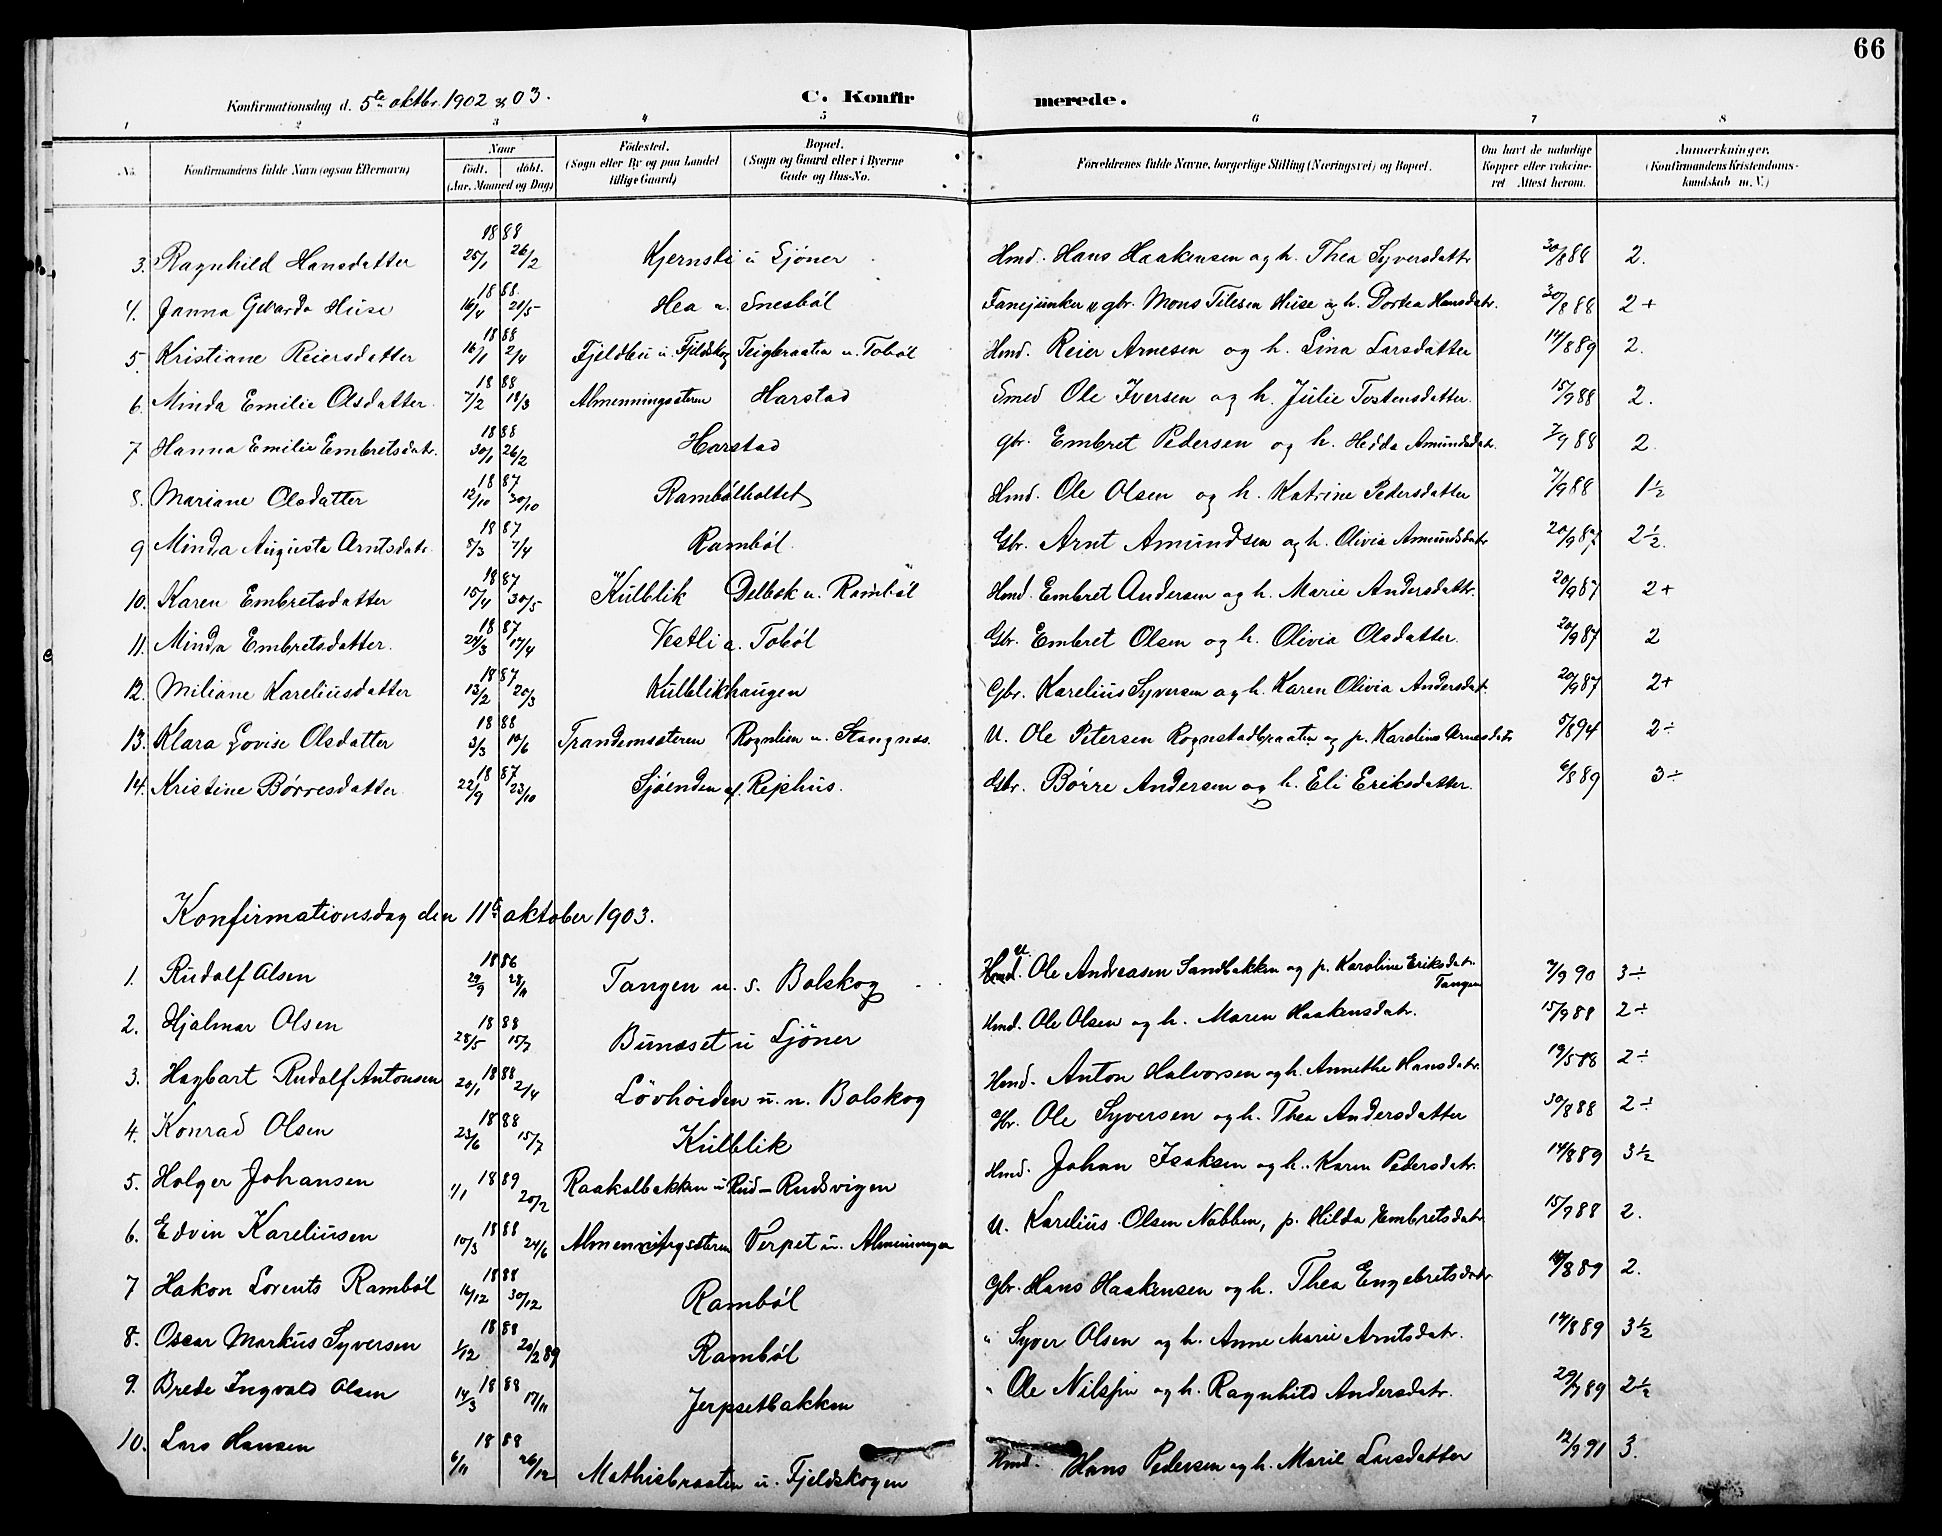 66
Konfirmationsdag d. 5te oktbr. 1902 & 03. C. Konfirmerede.
1 2 3 4 5 6 7 8
No. Konfirmandens fulde Navn (ogsaa Efternavn) Naar født. døbt. (Aar, Maaned og Dag) Födested. (Sogn eller By og paa Landet tillige Gaard) Bopæl. (Sogn og Gaard eller i Byerne Gade og Hus-No. Forældrenes fulde Navne, borgerlige Stilling (Næringsvei) og Bopæl. Om havt de naturlige Kopper eller vakcineret Attest herom. Anmerkninger. (Konfirmandens Kristendomskundskab m. V.)
3. Ragnhild Hansdatter 1888 25/1 26/2 Kjernsli u Sjöner Hmd. Hans Haakensen og h. Thea Syversdattr 30/8 88 2.
4. Janna Gevarda Huse 1888 16/4 21/5 Hea u. Snesböl Fanejunker & gbr. Mons Tilesen Huse og h. Dortea Hansdatr. 30/8 88 2+
5. Kristiane Reiersdatter 1888 16/1 2/4 Fjeldbu u. Fjeldskog Teigbraaten u. Toböl Hmd. Reier Arnesen og h. Lina Larsdatter 14/8 89 2.
6. Minda Emilie Olsdatter. 1888 7/2 18/3 Almenningsæteren Harstad Smed Ole Iversen og h. Julie Tostensdatter. 15/9 88 2.
7 Hanna Emilie Embretsdatr. 1888 30/1 26/2 Harstad gbr. Embret Pedersen og h. Hedda Amundsdatr. 7/9 88 2.
8. Mariane Olsdatter 1887 12/10 30/10 Rambölholtet Hmd. Ole Olsen og h. Katrine Pedersdatter 7/9 88 1½
9 Minda Augusta Arntsdatr. 1887 8/3 7/4 Ramböl. Gbr. Arnt Amundsen og h. Olivia Amundsdatr 20/9 87 2½.
10. Karen Embretsdatter 1887 15/4 30/5 Kulblik Delbæk u. Ramböl Hmd. Embret Andersen og h. Marie Andersdattr. 20/9 87 2+
11. Minda Embretsdatter. 1887 24/3 17/4 Vestli u. Toböl Gbr. Embret Olsen og h. Olivia Olsdatter. 20/9 87 2
12. Miliane Kareliusdatter 1887 13/2 20/3 Kulblikhaugen Gbr. Karelius Syversen og h. Karen Olivia Andersdat. 20/9 87 2+
13. Klara Lovise Olsdatter 1888 3/3 10/6 Trandemsæteren Rognlien u. Stangnæs. U. Ole Petersen Rognstadbraaten og p. Karoline Arnesdatr 5/8 94 2÷
14. Kristine Börresdatter 1887 22/9 23/10 Sjöenden af Rejshus. Gbr. Börre Andersen og h. Eli Eriksdatter. 6/8 89 3÷
Konfirmationsdag den 11te oktober 1903.
1. Rudolf Olsen 1886 29/9 28/11 Tangen u. s. Bolskog U. Hmd. Ole Andreasen Sandbakken og p. Karoline Eriksdatr. Tangen 7/9 90 3÷
2. Hjalmar Olsen 1888 28/5 15/7 Bunæset u Sjöner Hmd. Ole Olsen og h. Maren Haakensdatr. 15/9 88 2÷
3. Hagbart Rudolf Antonsen 1888 20/1 2/4 Lövhöiden u. n. Bolskog Hmd. Anton Halvorsen og h. Annethe Hansdatr. 19/5 88 2÷
4. Konrad Olsen 1888 23/6 15/7 Kulblik Gbr. Ole Syversen og h. Thea Andersdatter 30/8 88 2÷
5. Holger Johansen 1889 1/1 20/2 Raakalbakken u Rud - Rudsvigen Hmd. Johan Isaksen og h. Karen Pedersdatr. 14/8 89 3½
6. Edvin Kareliusen 1888 10/3 24/6 Almenningsæteren Verpet u. Almeningen U. Karelius Olsen Nabben, p. Hilda Embretsdatr 15/9 88 2.
7 Hakon Lorents Ramböl 1888 16/12 30/12 Ramböl Gbr. Hans Haakensen og h. Thea Engebretsdatr 14/8 89 2.
8. Oscar Markus Syversen 1888 1/12 20/2 89 Ramböl " Syver Olsen og h. Anne Marie Arntsdatr. 14/8 89 3½
9. Brede Ingvald Olsen 1888 14/3 17/11 Jerpsetbakken " Ole Nilsen og h. Ragnhild Andersdatr. 29/7 89 2½
10. Lars Hansen 1888 6/11 26/12 Mathisbraaten u. Fjeldskogen Hmd. Hans Pedersen og h. Marie Larsdatter 12/9 91 3.